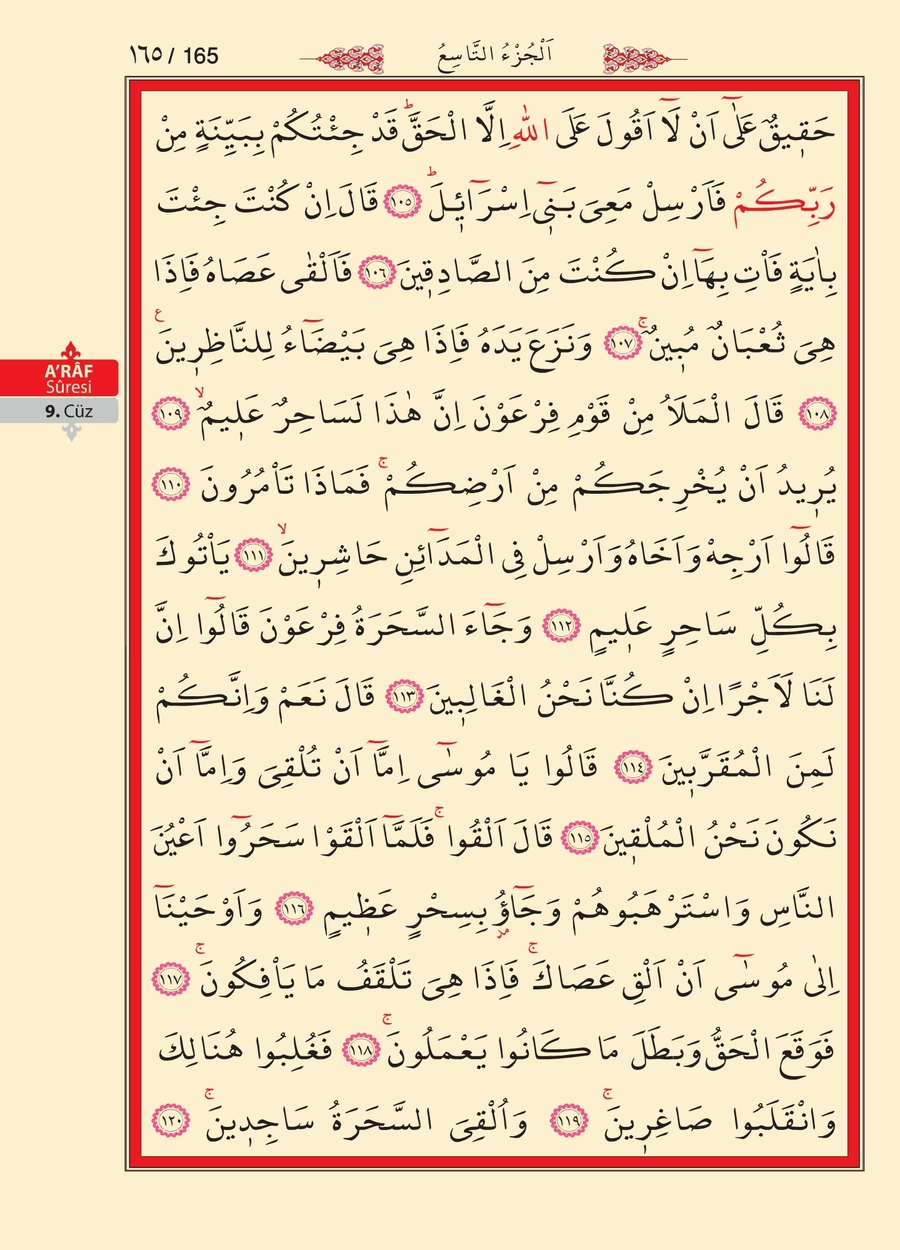 ١٦٥ / 165
اَلْجُزْءُ التَّاسِعُ
حَقٖيقٌ عَلٰٓى اَنْ لَٓا اَقُولَ عَلَى اللّٰهِ اِلَّا الْحَقَّؕ قَدْ جِئْتُكُمْ بِبَيِّنَةٍ مِنْ
رَبِّكُمْ فَاَرْسِلْ مَعِيَ بَنٖٓي اِسْرَٓائٖلَؕ ﴿١٠٥﴾ قَالَ اِنْ كُنْتَ جِئْتَ
بِاٰيَةٍ فَأْتِ بِهَٓا اِنْ كُنْتَ مِنَ الصَّادِقٖينَ ﴿١٠٦﴾ فَاَلْقٰى عَصَاهُ فَاِذَا
هِيَ ثُعْبَانٌ مُبٖينٌۚ ﴿١٠٧﴾ وَنَزَعَ يَدَهُ فَاِذَا هِيَ بَيْضَٓاءُ لِلنَّاظِرٖينَ ع
﴿١٠٨﴾ قَالَ الْمَلَاُ مِنْ قَوْمِ فِرْعَوْنَ اِنَّ هٰذَا لَسَاحِرٌ عَلٖيمٌۙ ﴿١٠٩﴾
يُرٖيدُ اَنْ يُخْرِجَكُمْ مِنْ اَرْضِكُمْۚ فَمَاذَا تَأْمُرُونَ ﴿١١٠﴾
قَالُٓوا اَرْجِهْ وَاَخَاهُ وَاَرْسِلْ فِي الْمَدَٓائِنِ حَاشِرٖينَۙ ﴿١١١﴾ يَأْتُوكَ
بِكُلِّ سَاحِرٍ عَلٖيمٍ ﴿١١٢﴾ وَجَٓاءَ السَّحَرَةُ فِرْعَوْنَ قَالُٓوا اِنَّ
لَنَا لَاَجْرًا اِنْ كُنَّا نَحْنُ الْغَالِبٖينَ ﴿١١٣﴾ قَالَ نَعَمْ وَاِنَّكُمْ
لَمِنَ الْمُقَرَّبٖينَ ﴿١١٤﴾ قَالُوا يَا مُوسٰٓى اِمَّٓا اَنْ تُلْقِيَ وَاِمَّٓا اَنْ
نَكُونَ نَحْنُ الْمُلْقٖينَ ﴿١١٥﴾ قَالَ اَلْقُواۚ فَلَمَّٓا اَلْقَوْا سَحَرُٓوا اَعْيُنَ
النَّاسِ وَاسْتَرْهَبُوهُمْ وَجَٓاؤُ بِسِحْرٍ عَظٖيمٍ ﴿١١٦﴾ وَاَوْحَيْنَٓا
اِلٰى مُوسٰٓى اَنْ اَلْقِ عَصَاكَۚ فَاِذَا هِيَ تَلْقَفُ مَا يَأْفِكُونَۚ ﴿١١٧﴾
فَوَقَعَ الْحَقُّ وَبَطَلَ مَا كَانُوا يَعْمَلُونَۚ ﴿١١٨﴾ فَغُلِبُوا هُنَالِكَ
وَانْقَلَبُوا صَاغِرٖينَۚ ﴿١١٩﴾ وَاُلْقِيَ السَّحَرَةُ سَاجِدٖينَۚ ﴿١٢٠﴾
A'RÂF
Sûresi
9. Cüz